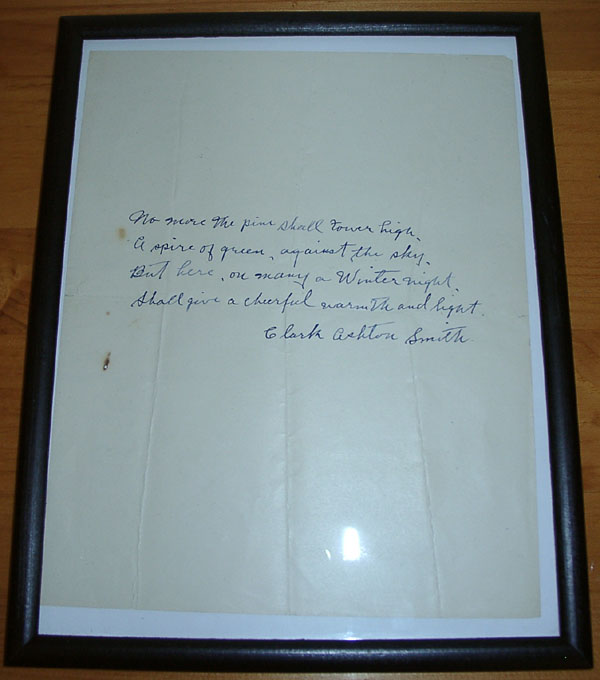 No more the pine shall tower high,
A spire of green, against the sky,
But here, on many a Winter night,
Shall give a cheerful warmth and light.
Clark Ashton Smith